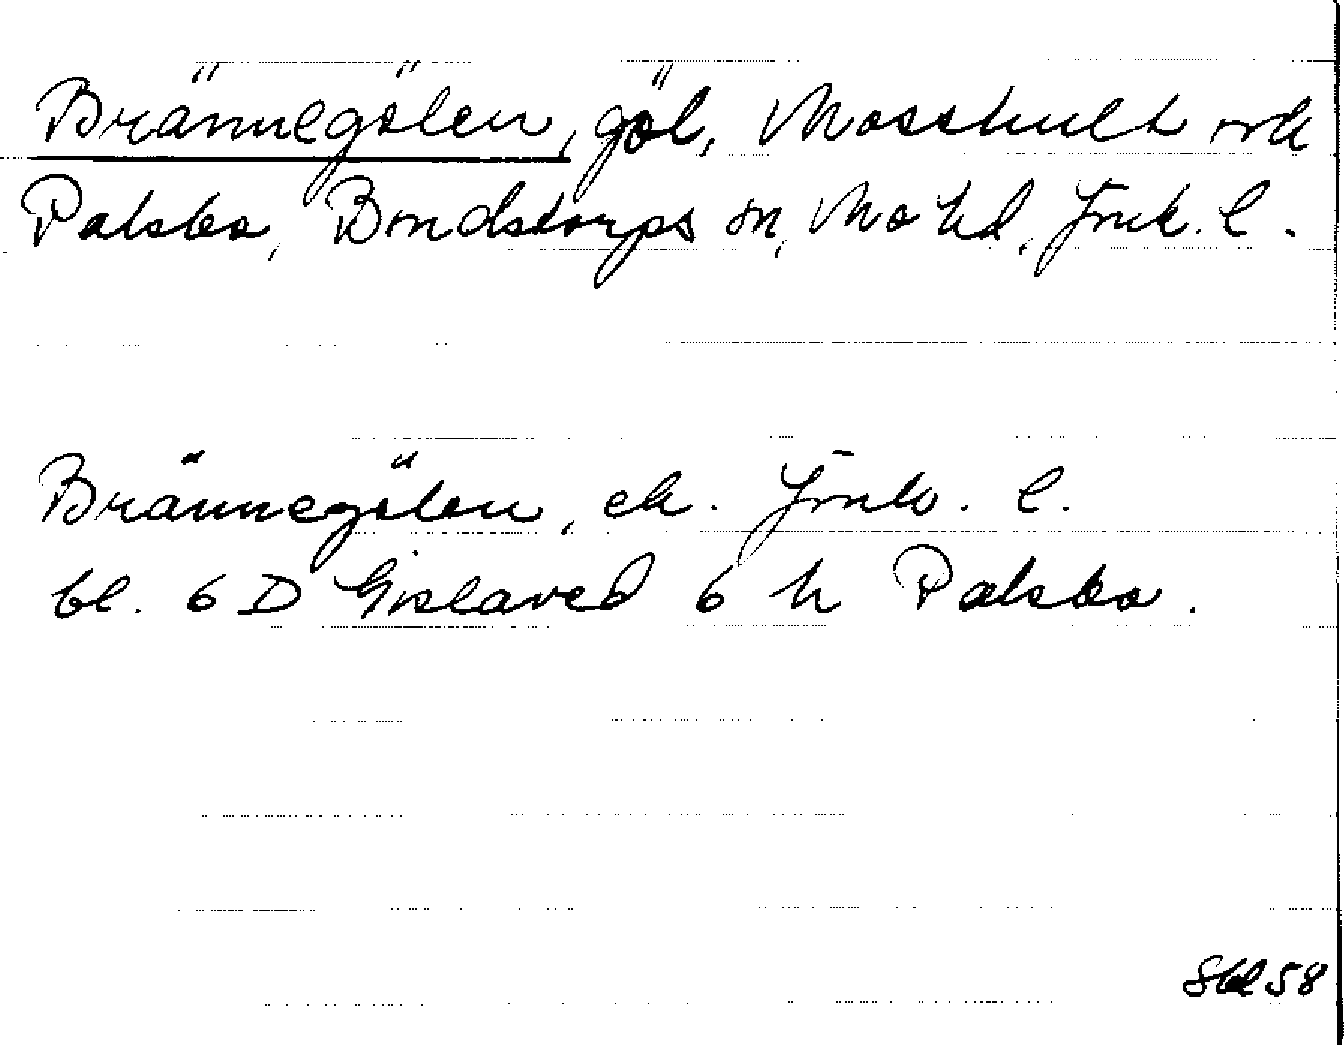 Brännegölen, göl, Mosshult och
Palsbo, Bondstorps sn, Mo hd, Jönk. l.
Brännegölen, ek. Jönk. l.
bl. 6 D Gislaved 6 h Palsbo.
Sbl 58